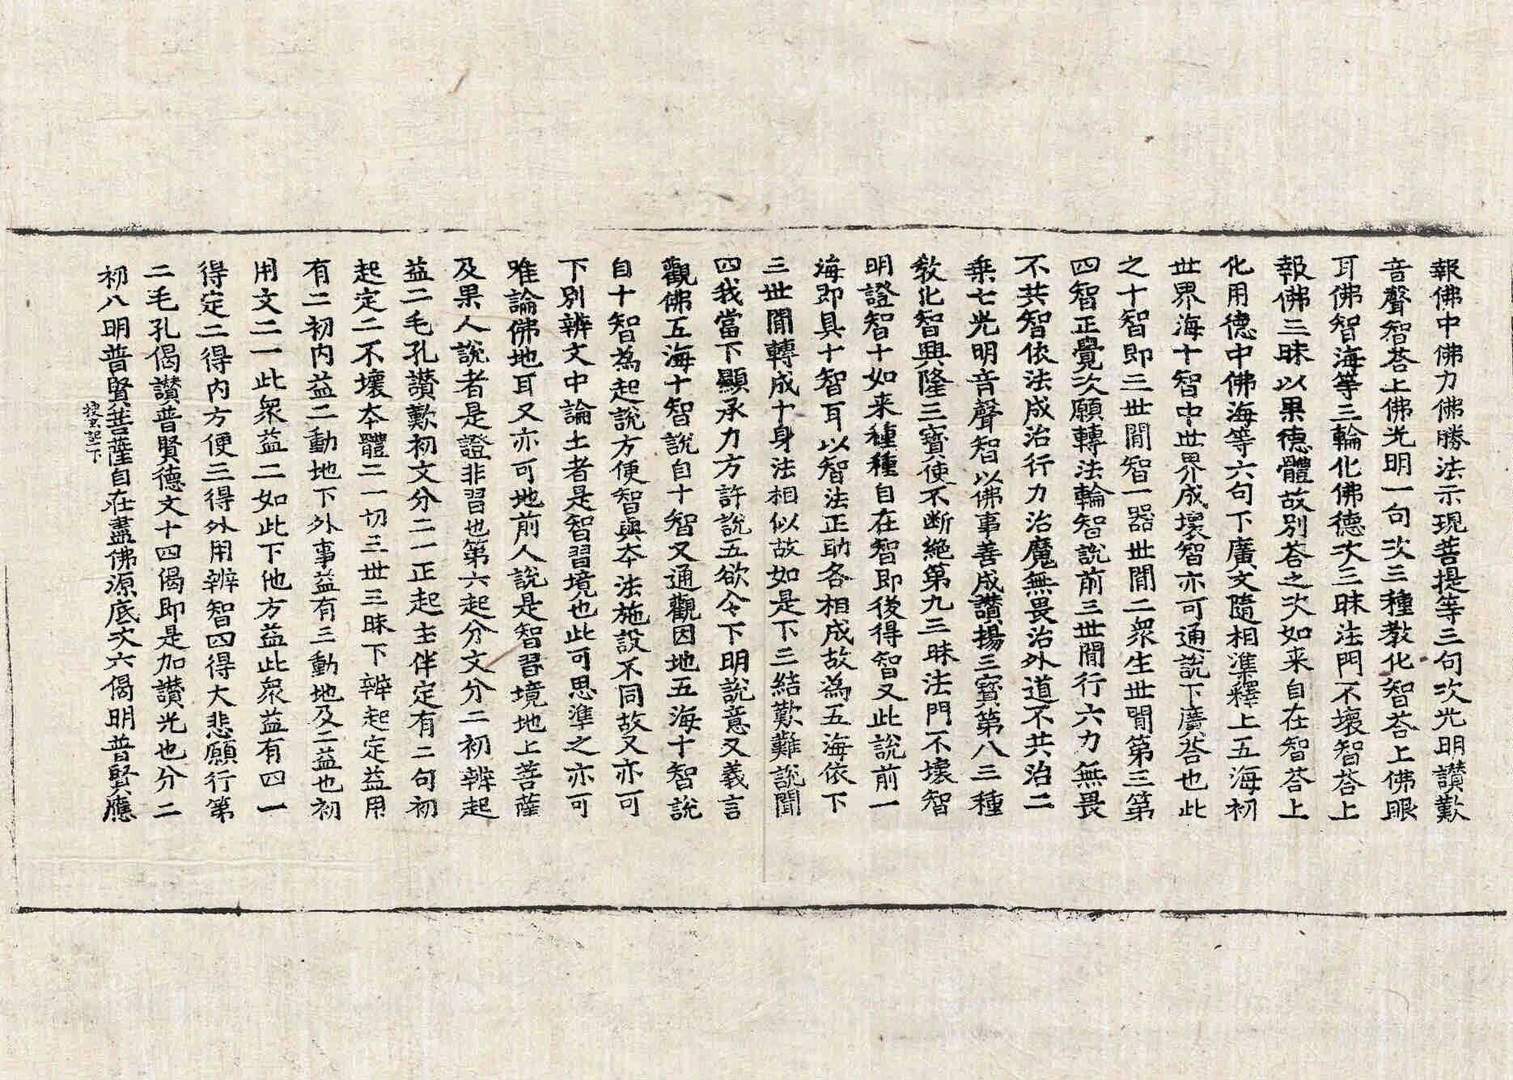 報佛中佛力佛勝法示現菩提等三句次光明讃歎
音聲智荅上佛光明一句次三種教化智荅上佛眼
耳佛智海等三輪化佛德次三昧法門不壞智荅上
報佛三昧以果德體故別荅之次如来自在智荅上
化用德中佛海等六句下廣文隨相准釋上五海初
世界海十智中世界成壞智亦可通說下廣荅也此
之十智即三世間智一器世間二衆生世間第三第
四智正覺次願轉法輪智說前三世間行六力無畏
不共智依法成治行力治魔無畏治外道不共治二
乗七光明音聲智以佛事善成讃揚三寶第八三種
教化智興隆三寶使不断絶第九三昧法門不壞智
明證智十如来種種自在智即後得智又此說前一
海即具十智耳以智法正助各相成故為五海依下
三世間轉成十身法相似故如是下三結歎難說聞
四我當下顯承力方許說五欲令下明說意又義言
觀佛五海十智說自十智又通觀因地五海十智說
自十智為起說方便智與夲法施設不同故又亦可
下別辨文中論土者是智習境也此可思準之亦可
唯論佛地耳又亦可地前人說是智習境地上菩薩
及果人說者是證非習也第六起分文分二初辨起
益二毛孔讃歎初文分二一正起主伴定有二句初
起定二不壞夲體二一切三世三昧下辨起定益用
有二初内益二動地下外事益有三動地及二益也初
用文二一此衆益二如此下他方益此衆益有四一
得定二得内方便三得外用辨智四得大悲願行第
二毛孔偈讃普賢德文十四偈即是加讃光也分二
初八明普賢菩薩自在盡佛源底次六偈明普賢應